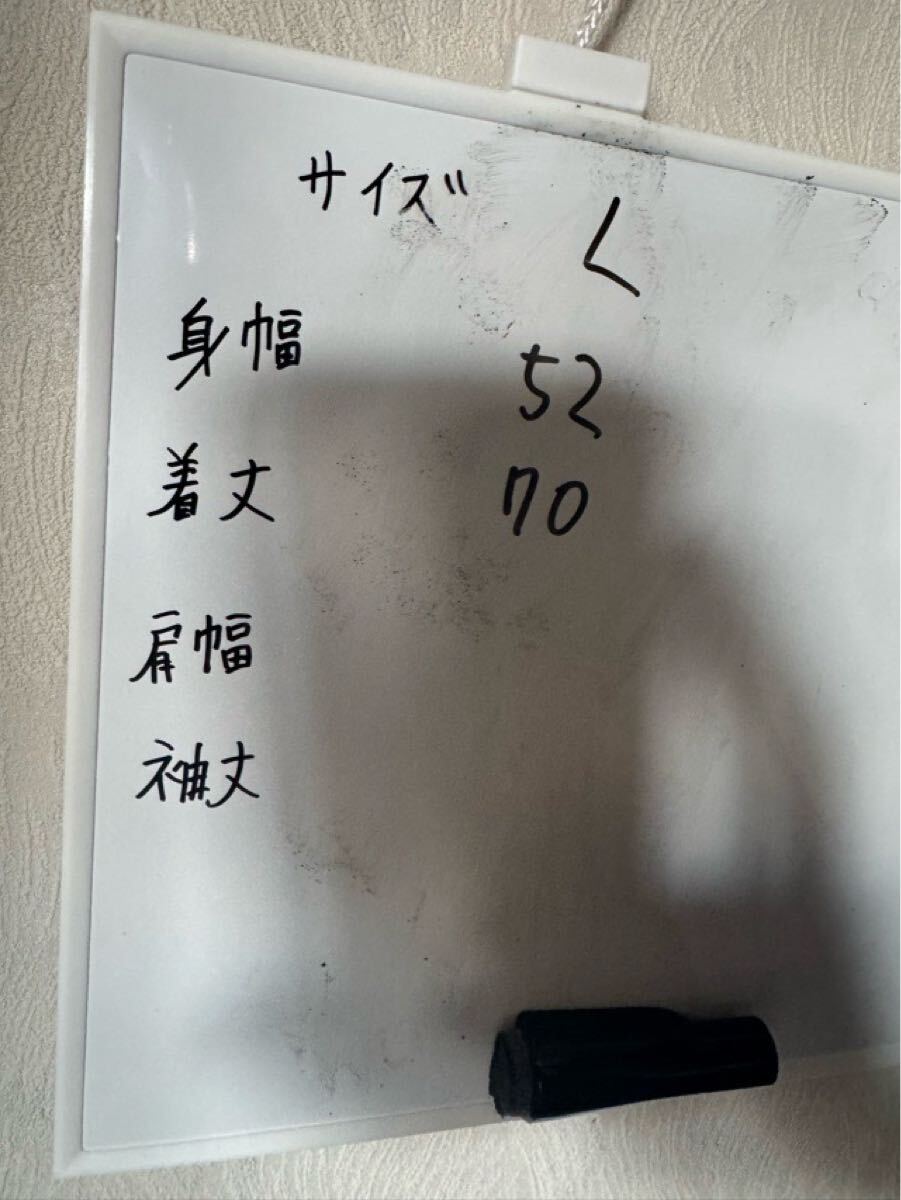 サイズ L
身幅 52
着丈 70
肩幅
袖丈